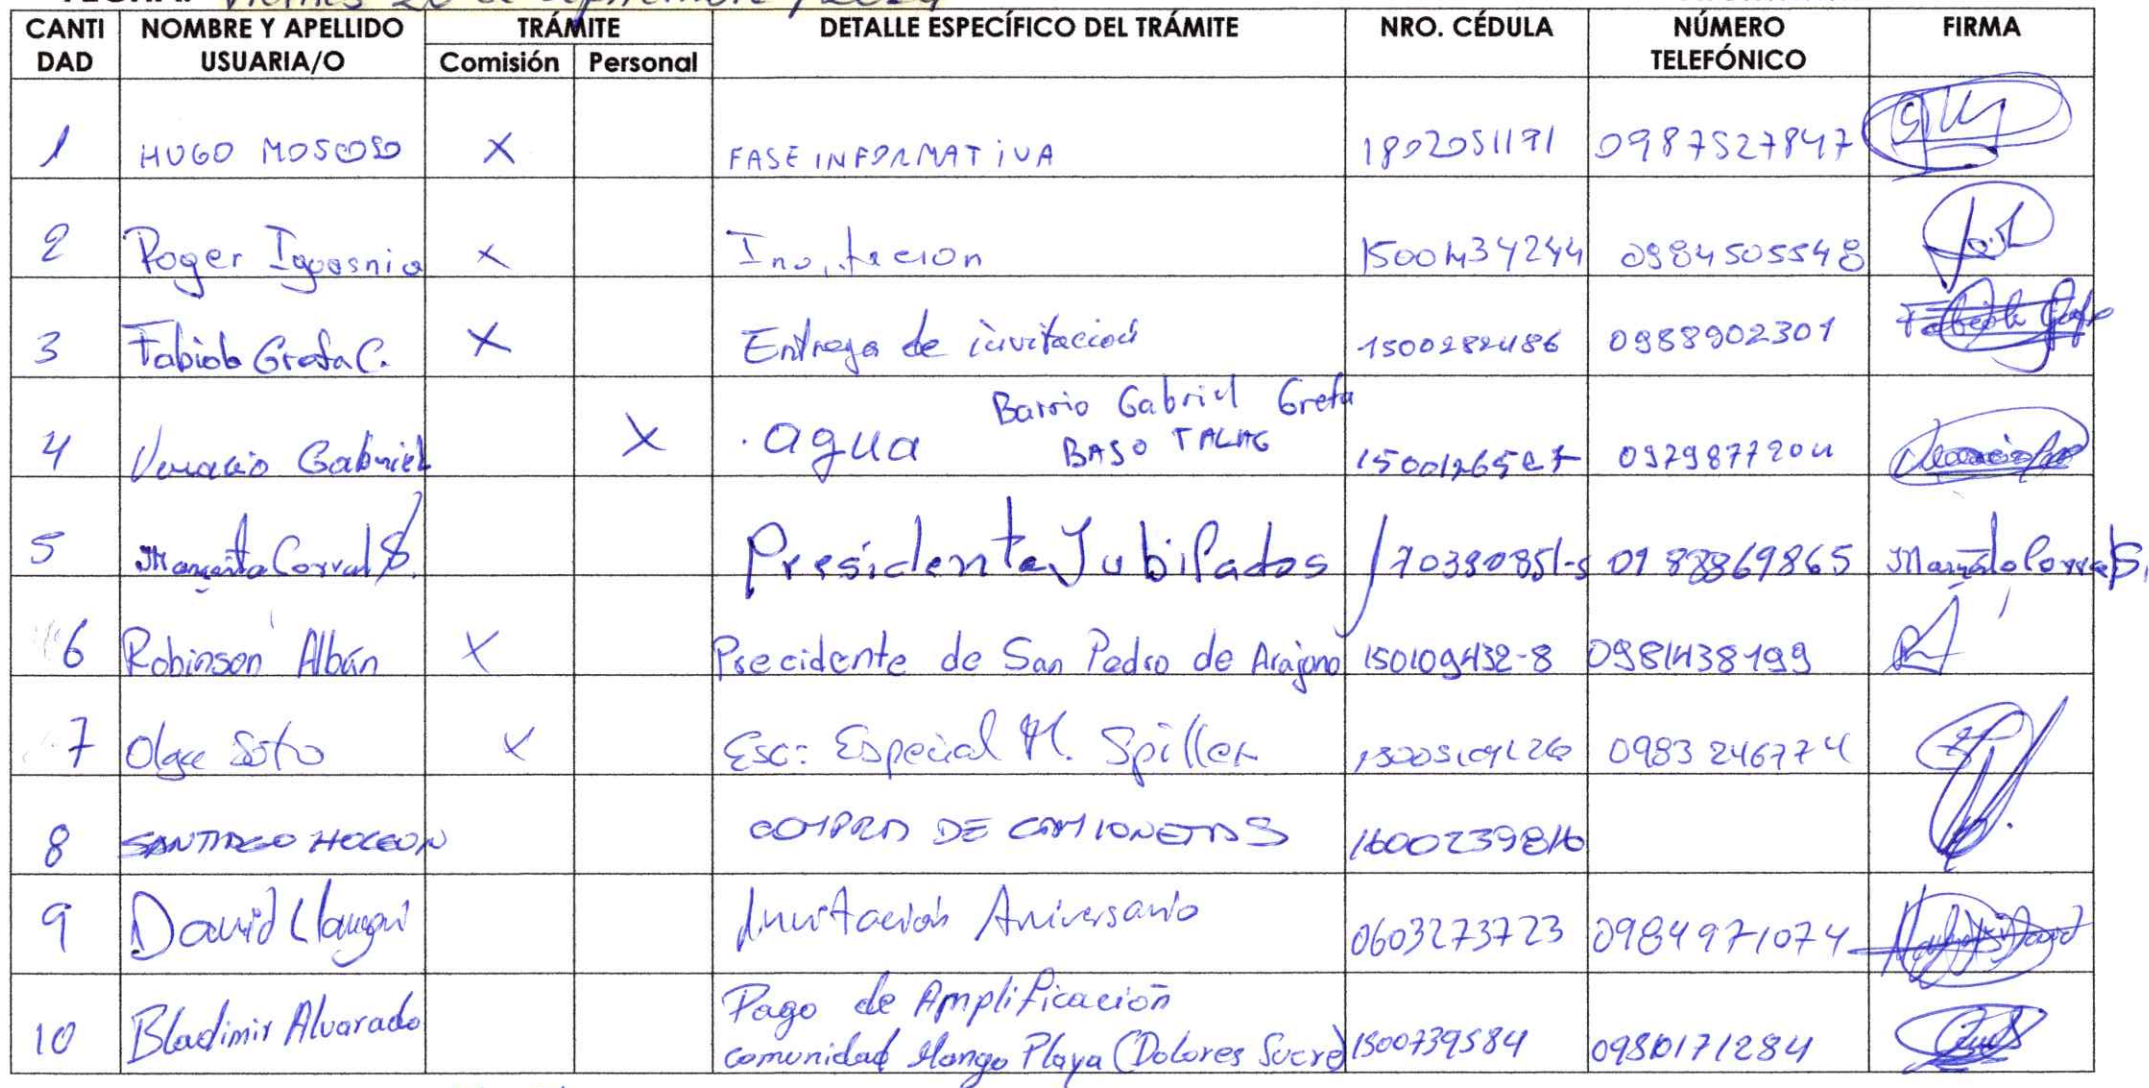 Viernes 20 de septiembre / 2024
CANTI DAD NOMBRE Y APELLIDO USUARIA/O TRÁMITE Comisión Personal DETALLE ESPECÍFICO DEL TRÁMITE NRO. CÉDULA NÚMERO TELEFÓNICO FIRMA
1 HUGO MOSCOSO X FASE INFORMATIVA 1802051191 0987527847
2 Roger X 0984505548
3 Fabiola Grefa C. X Entrega de invitación 1500282486 0988902301
4 Gabriel X . agua Barrio Gabriel Grefa BASO TALAG 0979877204
5 Margarita Corral S. Presidenta Jubilados 170390851-5
6 Robinson Albán X Precidente de San Pedro de Arajuno 150109432-8 0981438199
7 Olga Soto X Esc: Especial M. Spiller 0983246774
8 SANTIAGO COMPRA DE CAMIONETAS 1600239816
9 David Invitación Aniversario 0603273723 0984971074
10 Bladimir Alvarado Pago de Amplificación comunidad Mango Playa (Dolores Sucre) 1500739584 0980171284